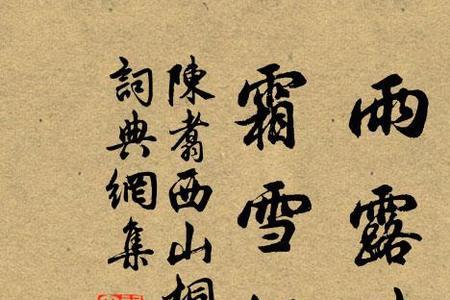 雨露
霜雪
陳翥西山桐
詞典網集